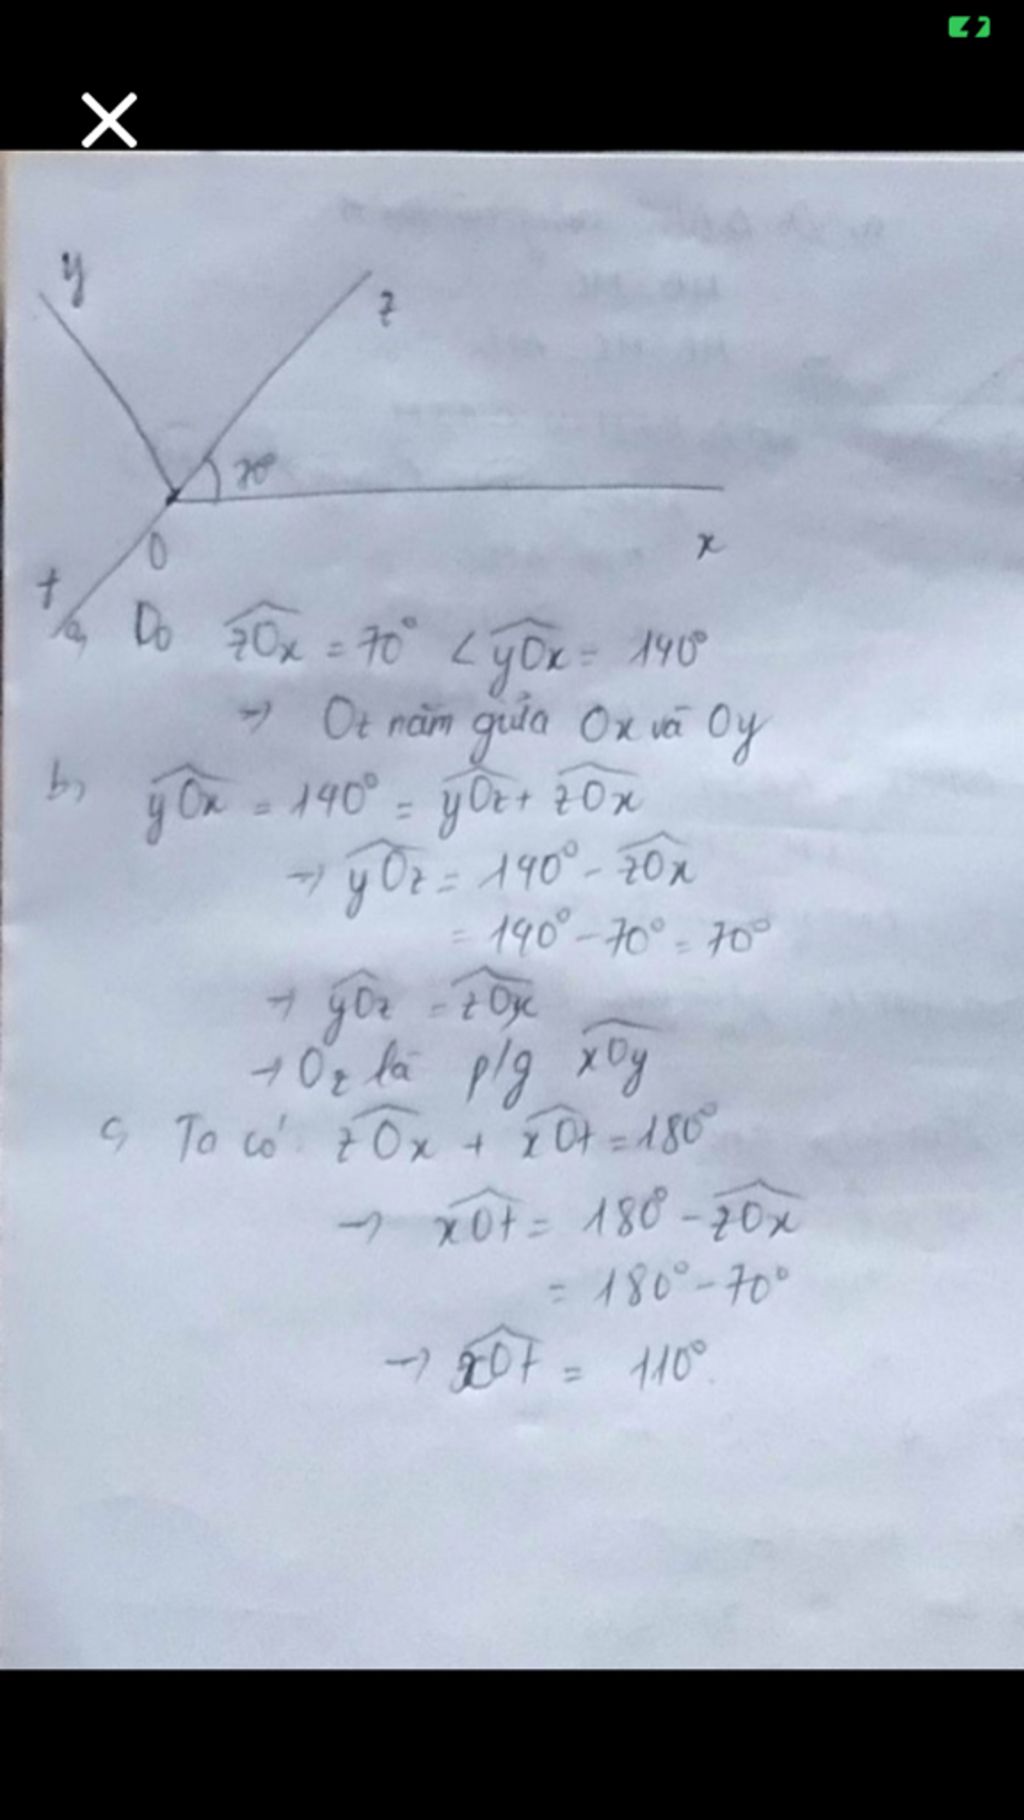 y
z
70°
O
x
t
a, Do zOx = 70° < yOx = 140°
→ Oz nằm giữa Ox và Oy
b, yOx = 140° = yOz + zOx
→ yOz = 140° - zOx
= 140° - 70° = 70°
→ yOz = zOx
→ Oz là p/g xOy
c, Ta có: zOx + xOt = 180°
→ xOt = 180° - zOx
= 180° - 70°
→ xOt = 110°.